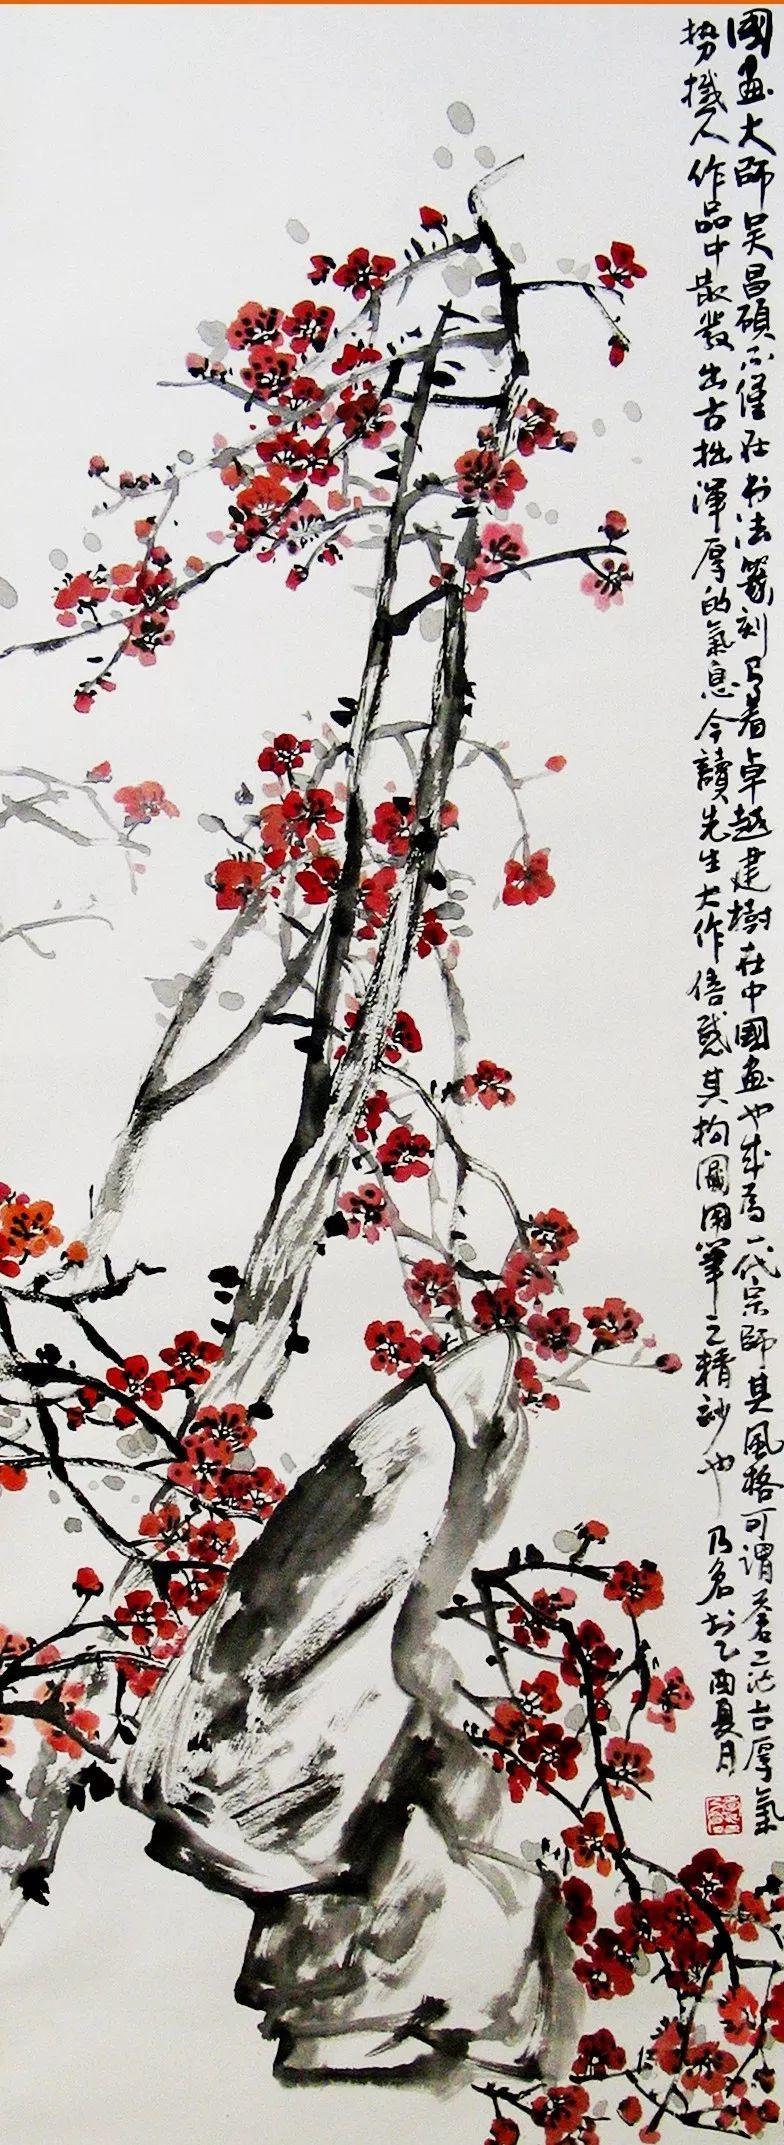 國畫大師吴昌碩不僅在书法篆刻有着卓越建樹在中國画也成爲一代宗師其風格可謂蒼茫古厚氣
势撼人作品中散發出古拙渾厚的氣息今讀先生大作倍感其构圖用筆之精妙也 乃名 於乙酉夏月